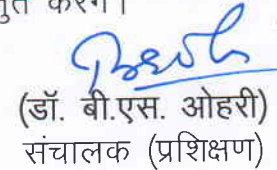 करेंगे।
(डॉ. बी.एस. ओहरी)
संचालक (प्रशिक्षण)